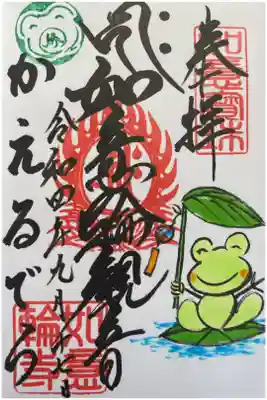 奉拝
如意輪観音
令和四年九月十七日
かえるでら
如意
輪寺